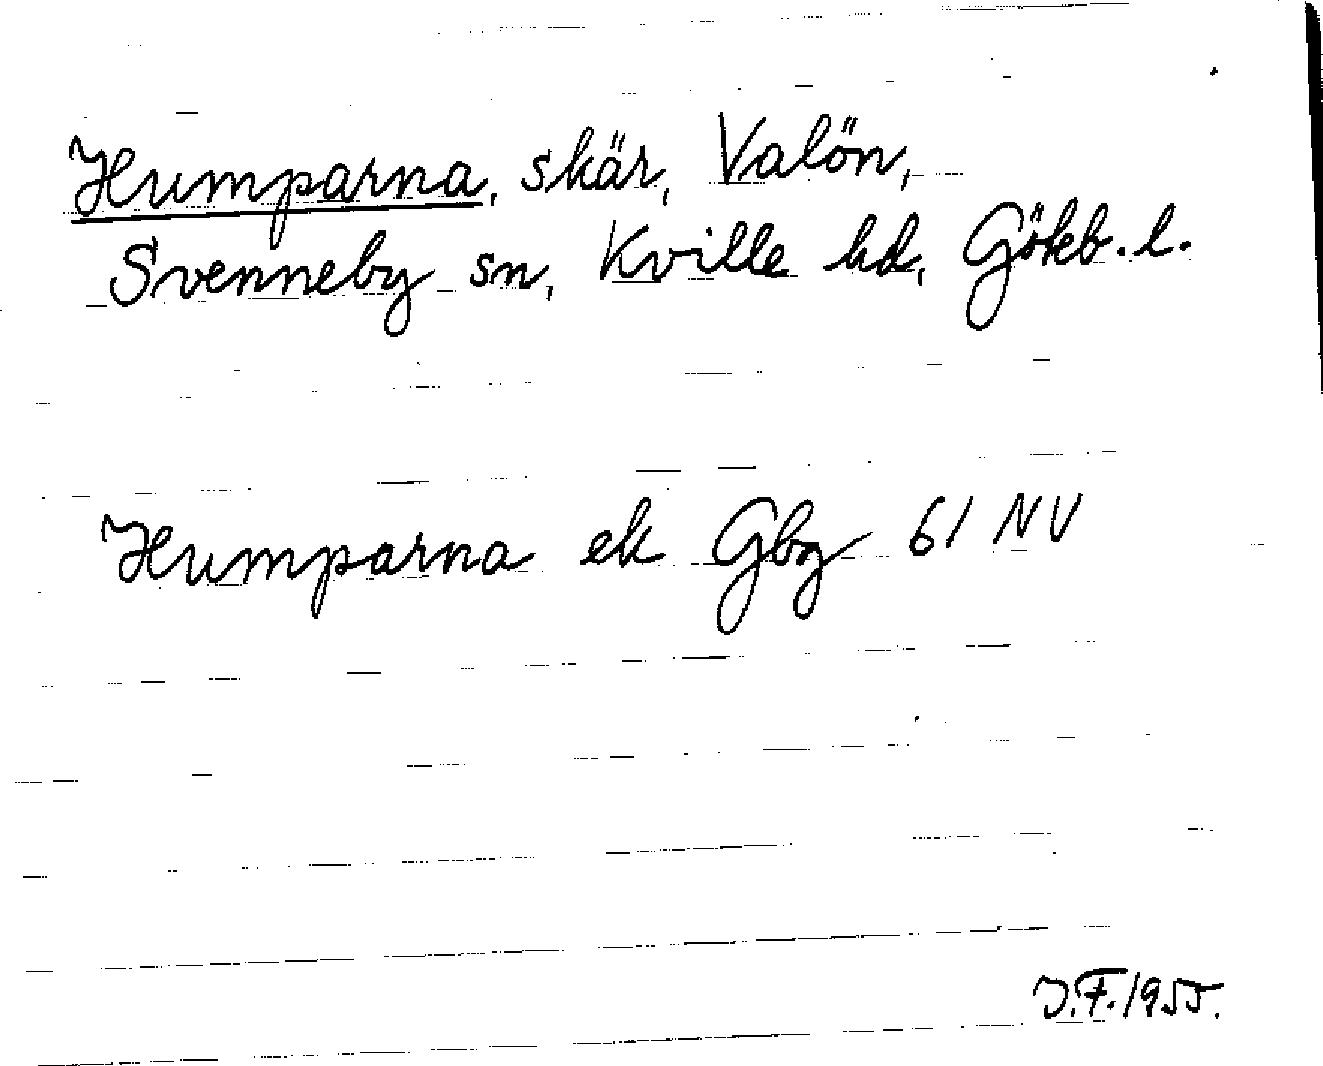 Humparna, skär, Valön,
Svenneby sn, Kville hd, Göteb. l.
Humparna ek Gbg 61 NV
J.F. 1955.